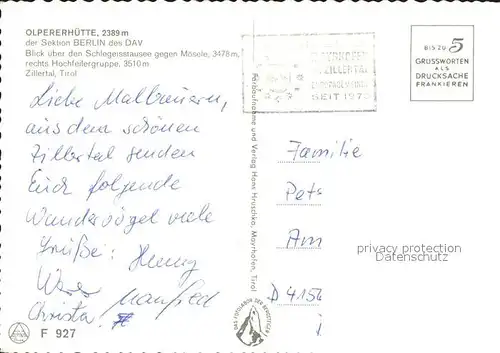 OLPERERHÜTTE, 2389 m
der Sektion BERLIN des DAV
Blick über den Schlegeisstausee gegen Mösele, 3478 m,
rechts Hochfeilergruppe, 3510 m
Zillertal, Tirol
BIS ZU 5
GRUSSWORTEN
ALS
DRUCKSACHE
FRANKIEREN
ZILLERTAL
SEIT 197
Liebe Malbauern,
aus dem schönen
Zillertal senden
Euch folgende
Wandervögel viele
Grüße: Henny
Uwe Manfred
Christa
F 927
Farbaufnahme und Verlag Hans Hruschka, Mayrhofen, Tirol
Familie
Pets
Am
D 4154
privacy protection
Datenschutz